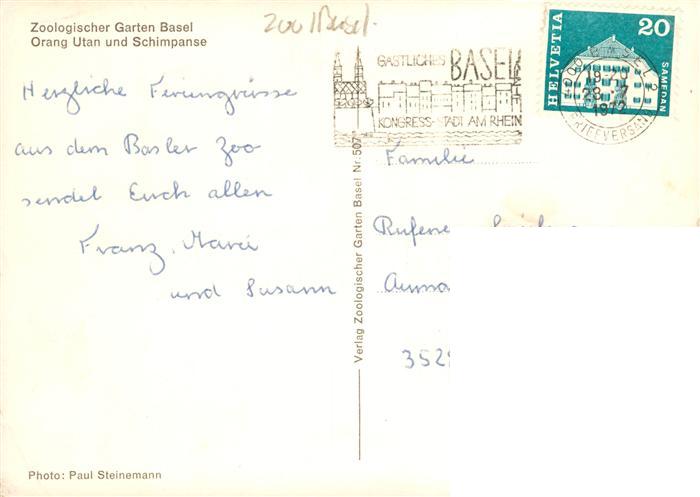 Zoologischer Garten Basel
Orang Utan und Schimpanse
Zoo Basel
GASTLICHES BASEL
KONGRESS-STADT AM RHEIN
HELVETIA 20
SAMEDAN
4000 BASEL 2
19-20
1972
BRIEFVERSAND
Herzliche Feriengrüsse
aus dem Basler Zoo
sendet Euch allen
Franz, Marei
und Susann
Familie
352
Verlag Zoologischer Garten Basel Nr. 507
Photo: Paul Steinemann